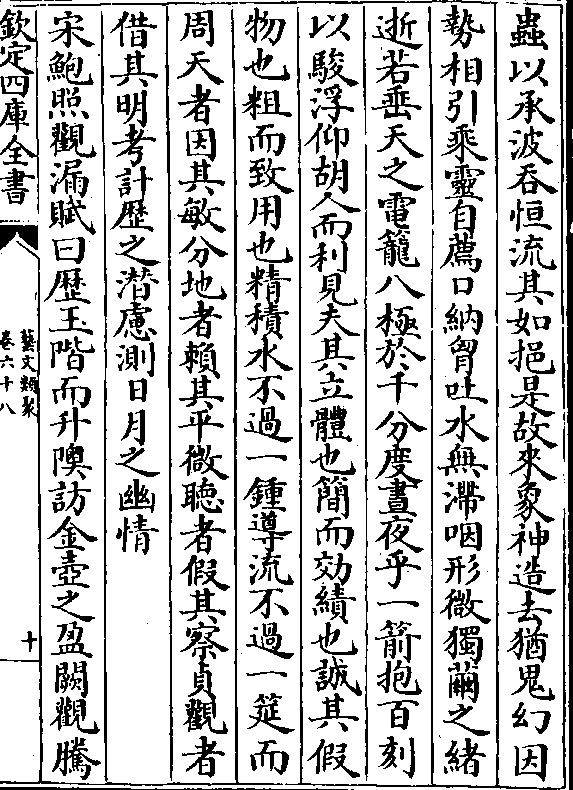 蟲以承波吞恒流其如挹是故來象神造去猶鬼幻因
勢相引乘靈自薦口納胷吐水無滯咽形微獨繭之緒
逝若垂天之電籠八極於千分度晝夜乎一箭抱百刻
以駿浮仰胡人而利見夫其立體也簡而効績也誠其假
物也粗而致用也精積水不過一鍾導流不過一筵而
周天者因其敏分地者賴其平微聽者假其察貞觀者
借其明考計歴之潛慮測日月之幽情
宋鮑照觀漏賦曰歴玉階而升隩訪金壺之盈闕觀騰
欽定四庫全書
藝文類聚
卷六十八
十